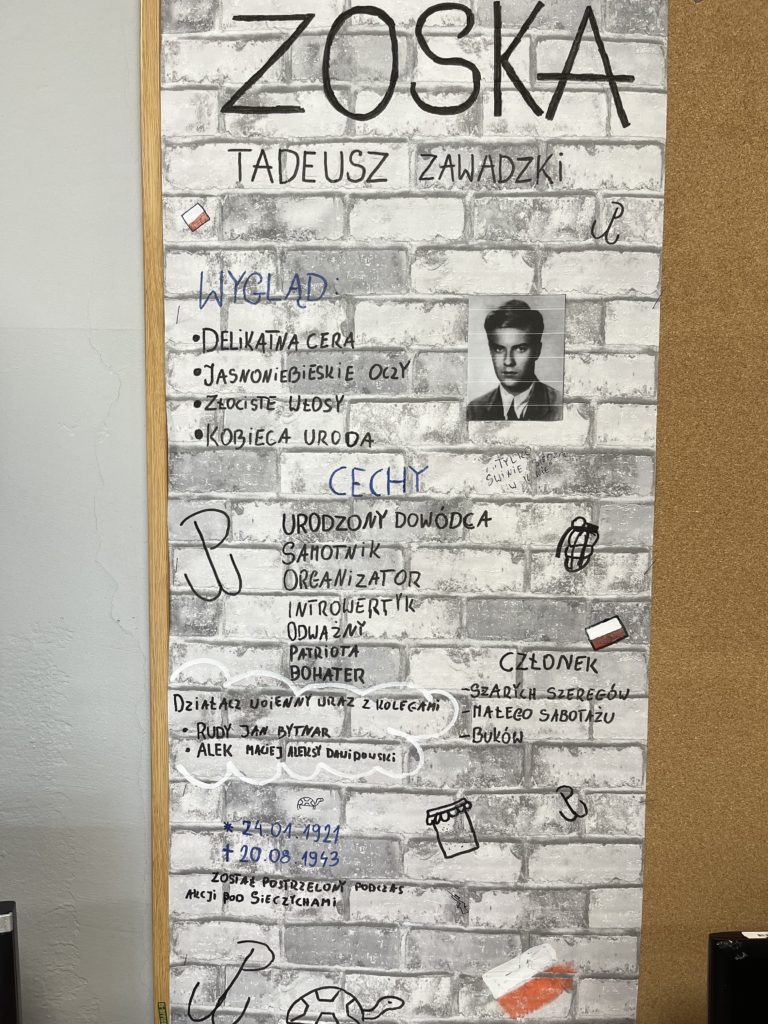 ZOSKA
TADEUSZ ZAWADZKI
WYGLĄD:
•DELIKATNA CERA
•JASNONIEBIESKIE OCZY
•ZŁOCISTE WŁOSY
•KOBIECA URODA
"TYLKO
ŚWINIE
W KINIE"
CECHY
URODZONY DOWÓDCA
SAMOTNIK
ORGANIZATOR
INTROWERTYK
ODWAŻNY
PATRIOTA
BOHATER
CZŁONEK
-SZARYCH SZEREGÓW
-MAŁEGO SABOTAŻU
-BUKÓW
DZIAŁACZ WOJENNY WRAZ Z KOLEGAMI
• RUDY JAN BYTNAR
• ALEK MACIEJ ALEKSY DAWIDOWSKI
* 24.01.1921
† 20.08.1943
ZOSTAŁ POSTRZELONY PODCZAS
AKCJI POD SIECZYCHAMI